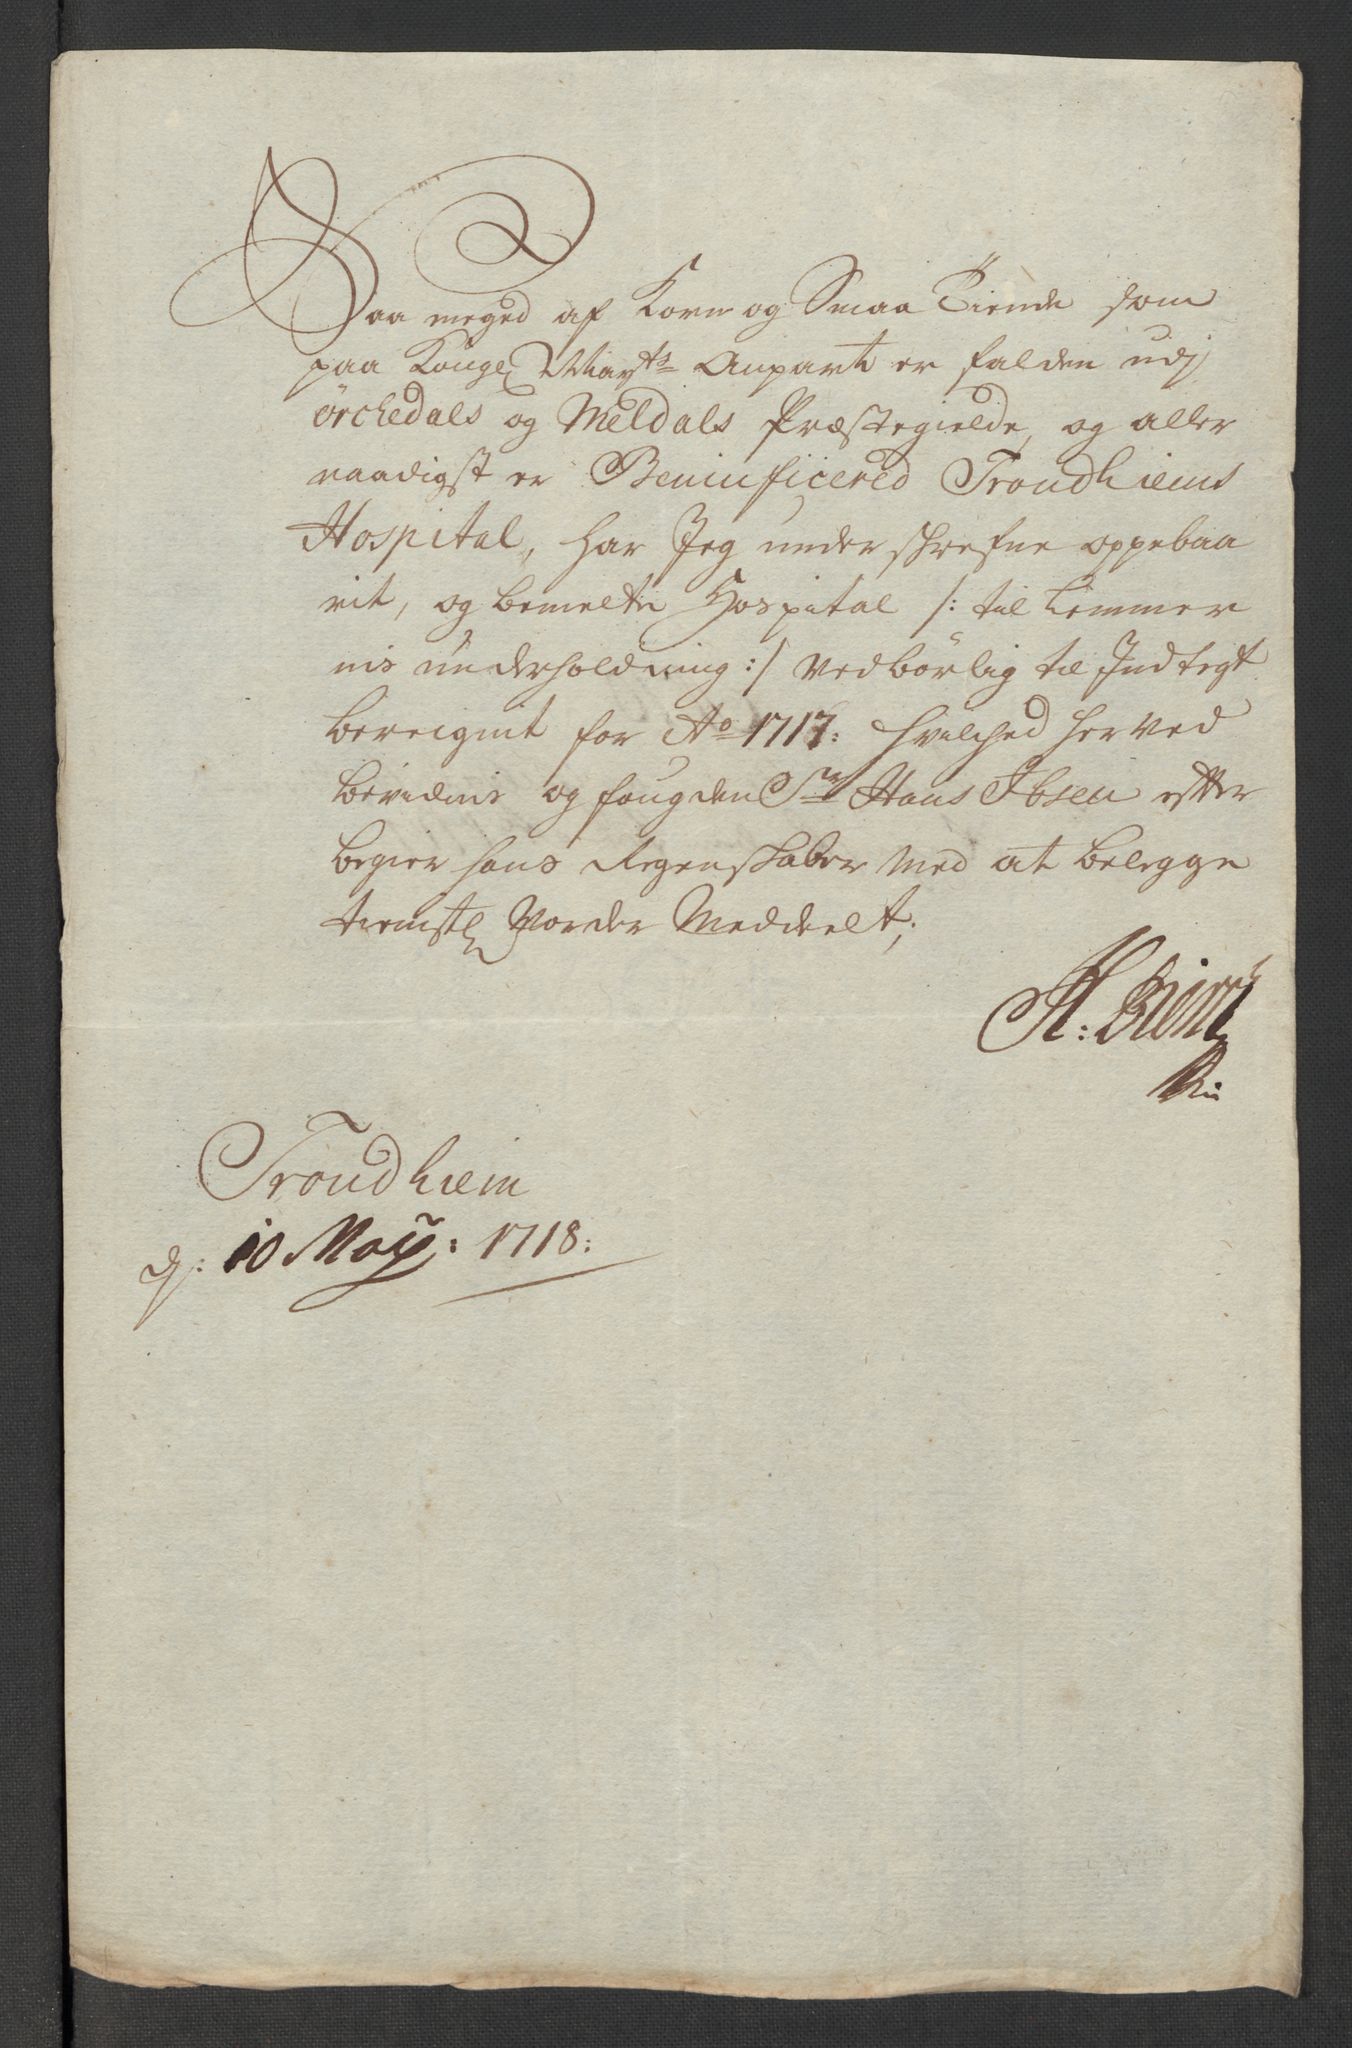 Saa meged af Korn og Smaa Tiende som
paa Kongel Mayts Anpart er falden udj
örchedals og Meldals Præstegielde, og aller
naadigst er Beninficered Trondhiems
Hospital, har Jeg underschrefne oppebaa
rit, og bemelte Hospital /: til Lemmer
nis underholdning :/ vedbörlig til Indtegt
bereignit for Ao 1717: hvilched herved
bevidnis og fougden Sr Hans Ibsen efter
begier hans Regenskaber med at belegge
tienstl Vorder Meddeelt;
H:
Trondhiem
d: 10 May: 1718: